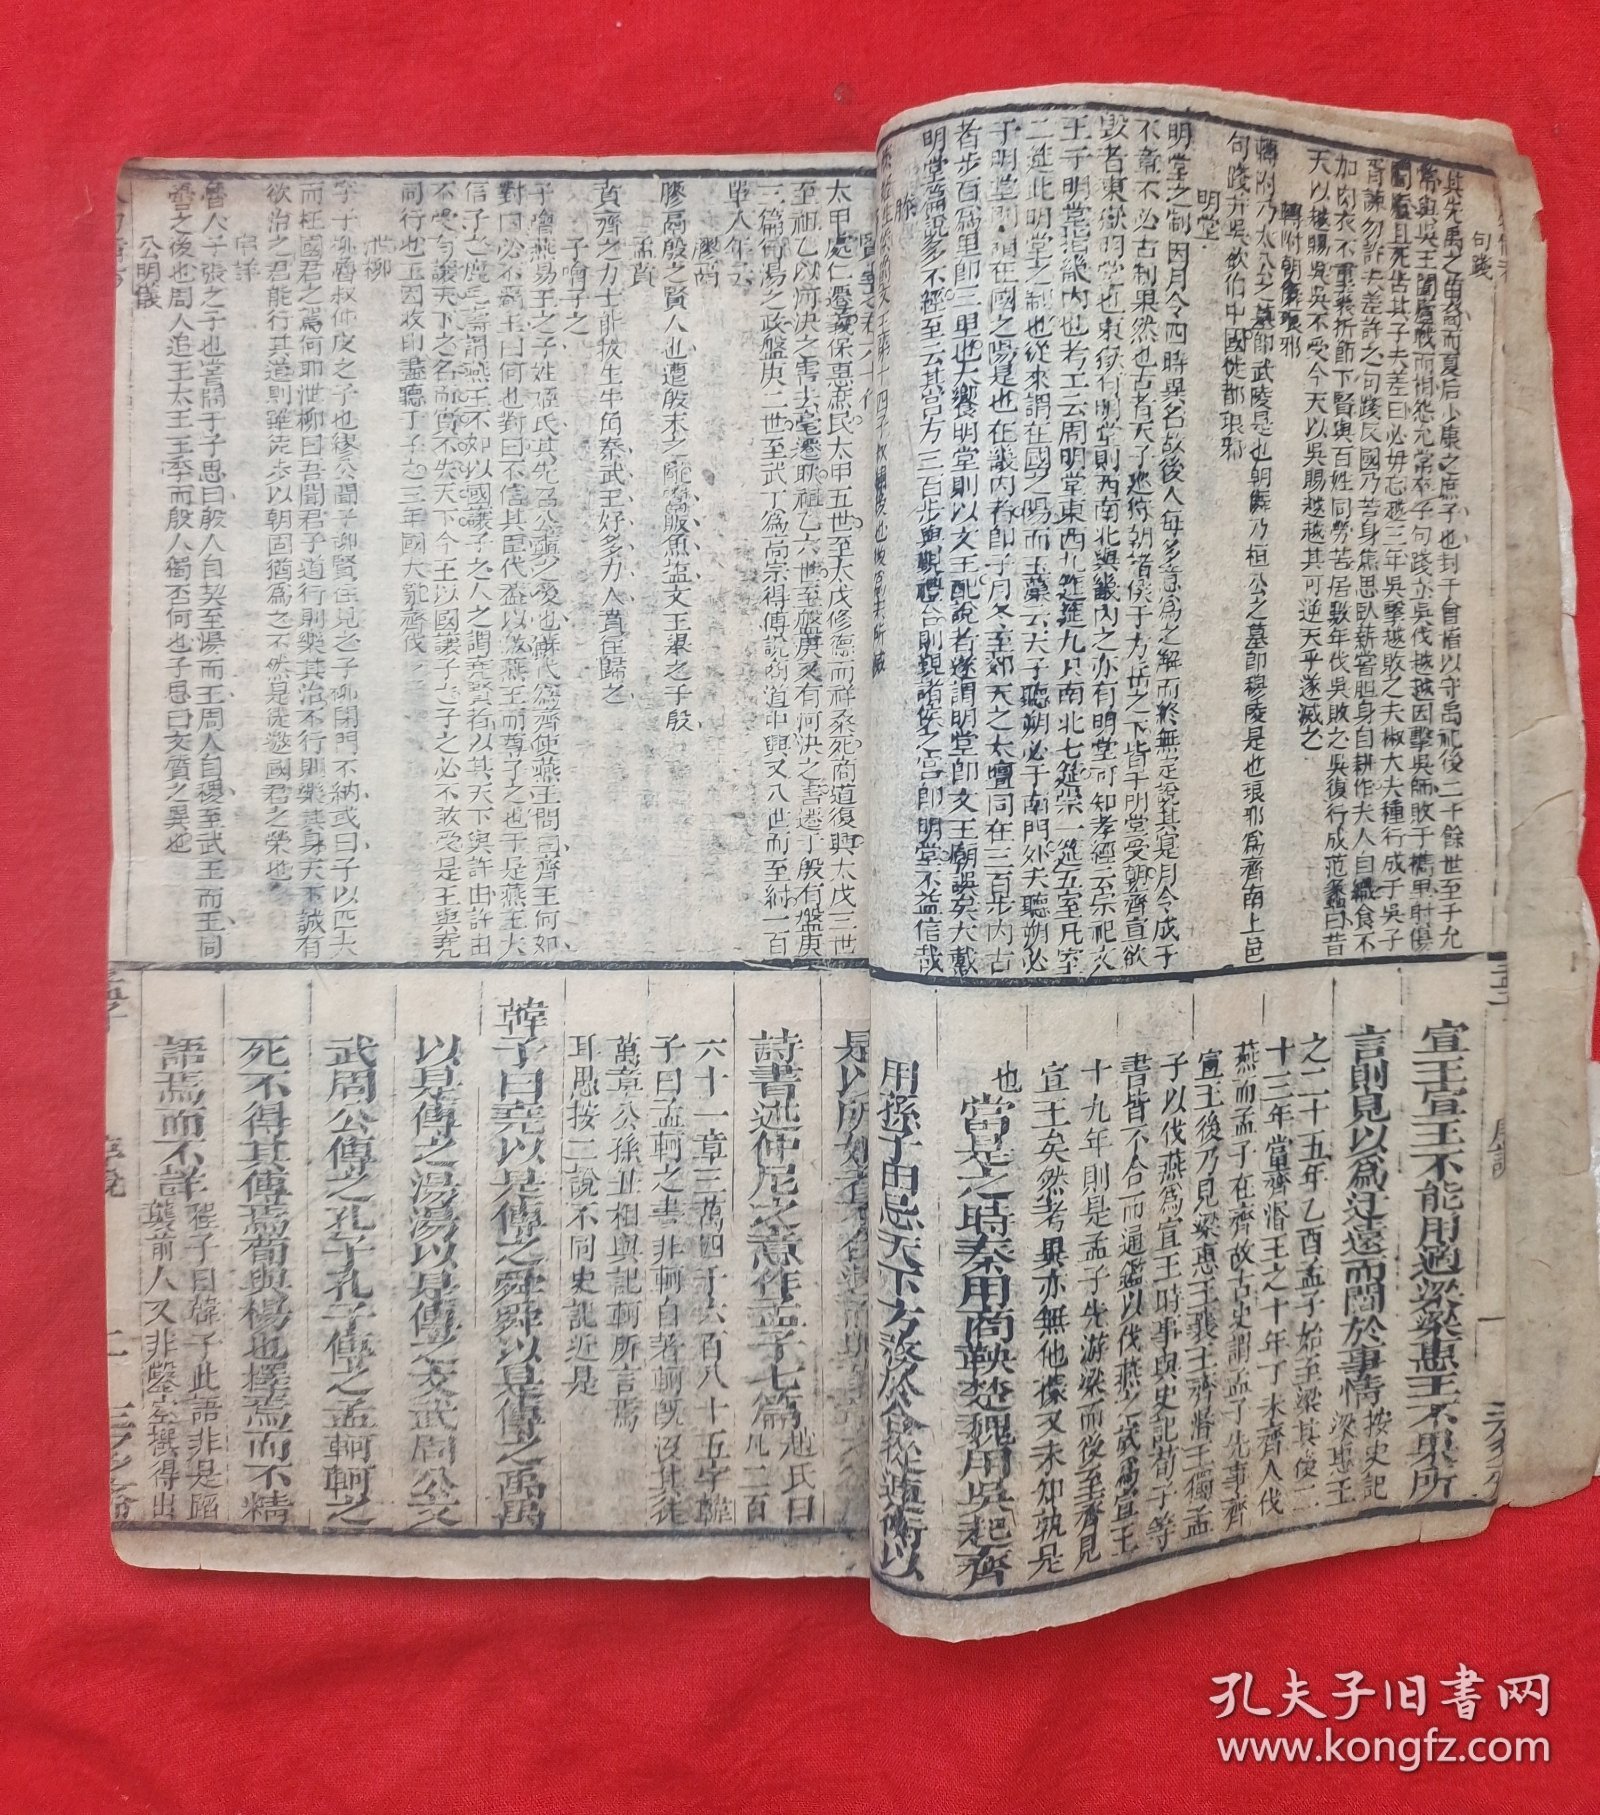 句踐
其先禹之苗裔而夏后少康之庶子也封于會稽以守禹祀後二十餘世至于允
常與吳王闔廬戰而相怨允常卒子句踐立吳伐越越因擊吳師敗于檇里射傷
闔廬且死告其子夫差曰必毋忘越三年吳擊越敗之夫椒大夫種行成于吳子
胥諫勿許夫差許之句踐反國乃苦身焦思臥薪嘗胆身自耕作夫人自織食不
加肉衣不重采折節下賢與百姓同勞苦居數年伐吳敗之吳復行成范蠡曰昔
天以越賜吳吳不受今天以吳賜越越其可逆天乎遂滅之
轉附朝儛琅邪
轉附乃太公之墓即武陵是也朝儛乃桓公之墓即穆陵是也琅邪為齊南上邑
句踐并吳欲伯中國徙都琅邪
明堂
明堂之制因月令四時異名故後人每多意為之解而終無定說其寔月令成于
不韋不必古制果然也古者天子廵狩朝諸侯于方岳之下皆于明堂受朝齊宣欲
毀者東嶽明堂也東嶽有明堂則西南北與畿內之亦有明堂可知孝經云宗祀文
王于明堂是畿內也考工云周明堂東西九筵九尺南北七筵崇一筵五室凡室
二筵此明堂之制也從來謂在國之陽而玉藻云天子聽朔必于南門外夫聽朔必
于明堂則明在國之陽是也在畿內者即子月冬至郊天之大壇同在三百步內古
者步百為里即三里也大饗明堂則以文王配說者遂謂明堂即文王廟誤矣大戴
明堂篇說多不經至云其宮方三百步與覲禮合則覲諸侯之宮即明堂不益信哉
滕
太甲處仁遷義保惠庶民太甲五世至太戊修德而祥桑死商道復興太戊三世
至祖乙以河決之害去亳遷耿祖乙六世至盤庚又有河決之害遷于殷有盤庚
三篇行湯之政盤庚二世至武丁為高宗得傅說商道中興又八世而至紂一百
單八年云
膠鬲
膠鬲殷之賢人也遭殷末之亂鬻販魚盐文王舉之于殷
孟賁
賁齊之力士能拔生牛角秦武王好多力人賁往歸之
子噲子之
子噲燕易王之子姓姬氏其先召公奭之後也蘇代為齊使燕王問曰齊王何如
對曰必不霸王曰何也對曰不信其臣代蓋以激燕王而尊子之也于是燕王大
信子之鹿毛壽謂燕王不如以國讓子之人之謂堯賢者以其天下與許由許由
不受有讓天下之名而實不失天下今王以國讓子之子之必不敢受是王與堯
同行也王因收印盡聽于子之三年國大亂齊伐
泄柳
字子柳魯叔仲皮之子也繆公聞子柳賢往見之子柳閉門不納或曰子以匹夫
而枉國君之駕何耶泄柳曰吾聞君子道行則樂其治不行則樂其身夫下誠有
欲治之君能行其道則雖徒步以朝固猶為之不然是從邀國君之榮也
公明儀
魯人子張之子也嘗問于子思曰殷人自契至湯而王周人自稷至武王而王同
嚳之後也周人追王太王王季而殷人獨否何也子思曰文質之異也
宣王宣王不能用適梁梁惠王不果所
言則見以為迂遠而闊於事情按史記梁惠王
之三十五年乙酉孟子始至梁其後二
十三年當齊湣王之十年丁未齊人伐
燕而孟子在齊故古史謂孟子先事齊
宣王後乃見梁惠王襄王齊湣王獨孟
子以伐燕為宣王時事與史記荀子等
書皆不合而通鑑以伐燕之歲為宣王
十九年則是孟子先游梁而後至齊見
宣王矣然考異亦無他據又未知孰是
也當是之時秦用商鞅楚魏用吳起齊
用孫子田忌天下方務於合從連衡以
詩書述仲尼之意作孟子七篇趙氏曰凡二百
六十一章三萬四千六百八十五字韓
子曰孟軻之書非軻自著軻既沒其徒
萬章公孫丑相與記軻所言焉
耳愚按二說不同史記近是
韓子曰堯以是傳之舜舜以是傳之禹禹
以是傳之湯湯以是傳之文武周公文
武周公傳之孔子孔子傳之孟軻軻之
死不得其傳焉荀與楊也擇焉而不精
語焉而不詳程子曰韓子此語非是蹈襲前人又非鑿空撰得出
孔夫子旧书网
www.kongfz.com